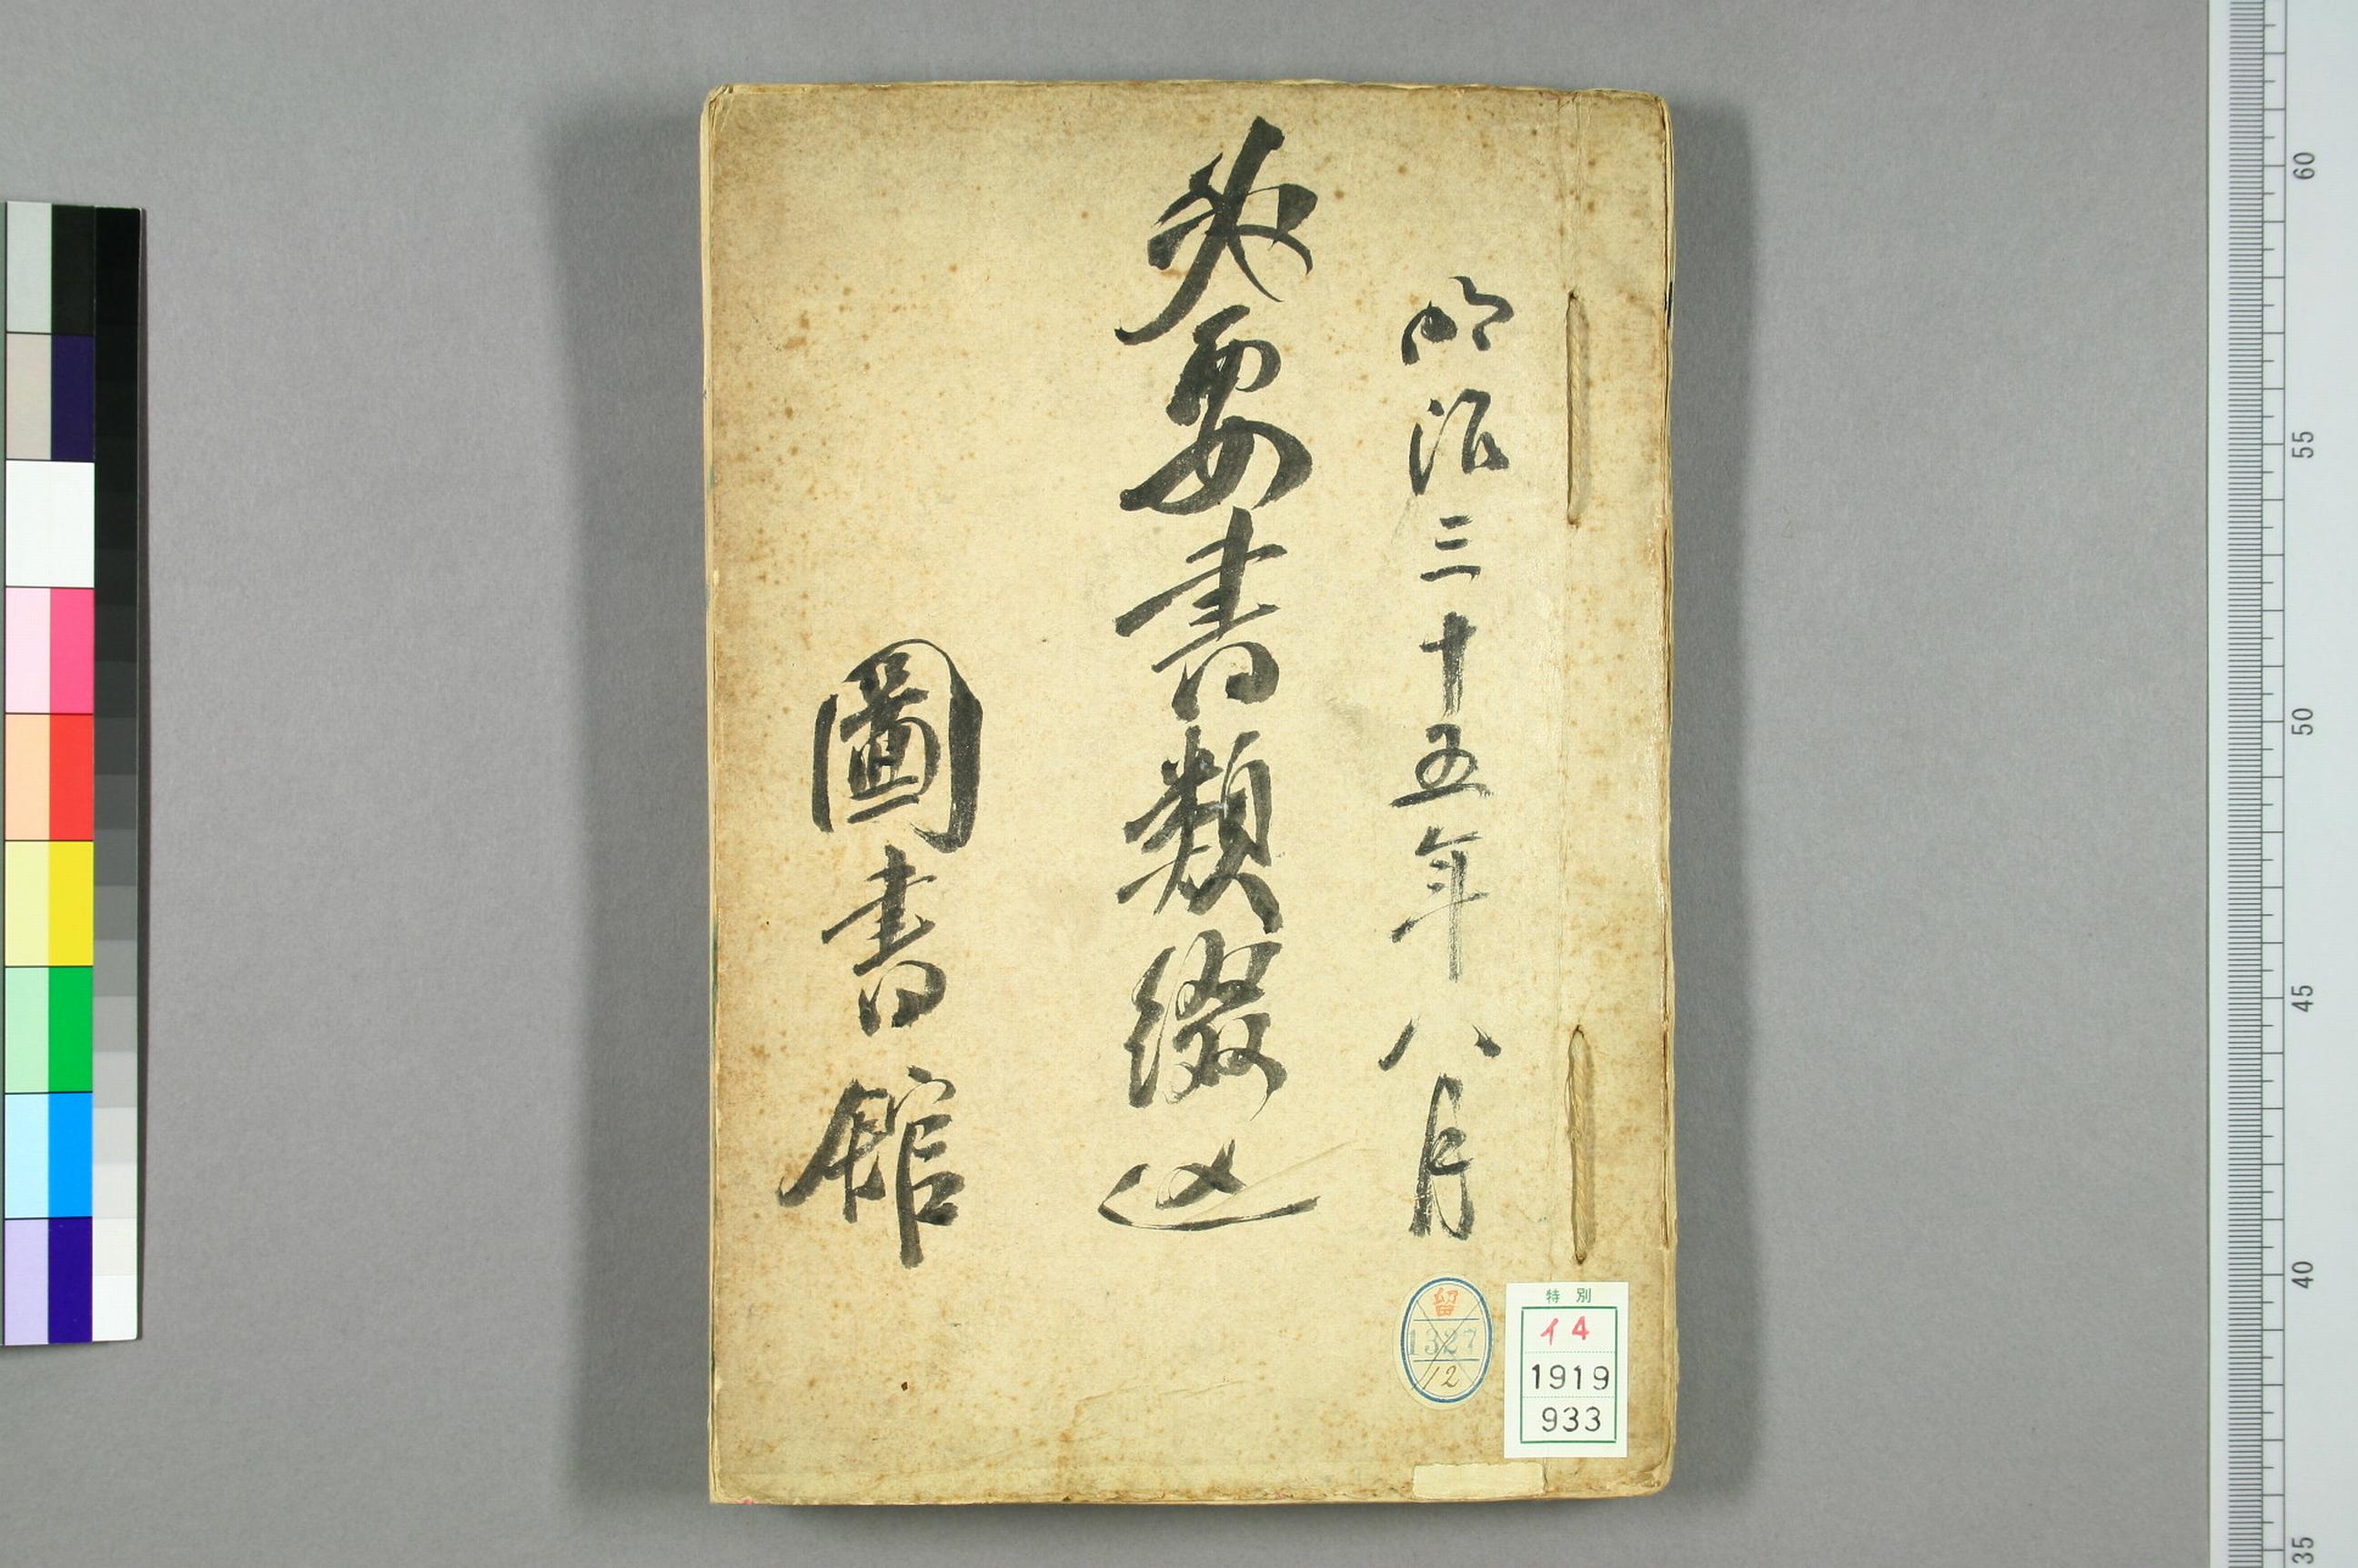 明治三十五年八月
必要書類綴込
圖書館
留
1327
12
特別
イ4
1919
933
60
55
50
45
40
35